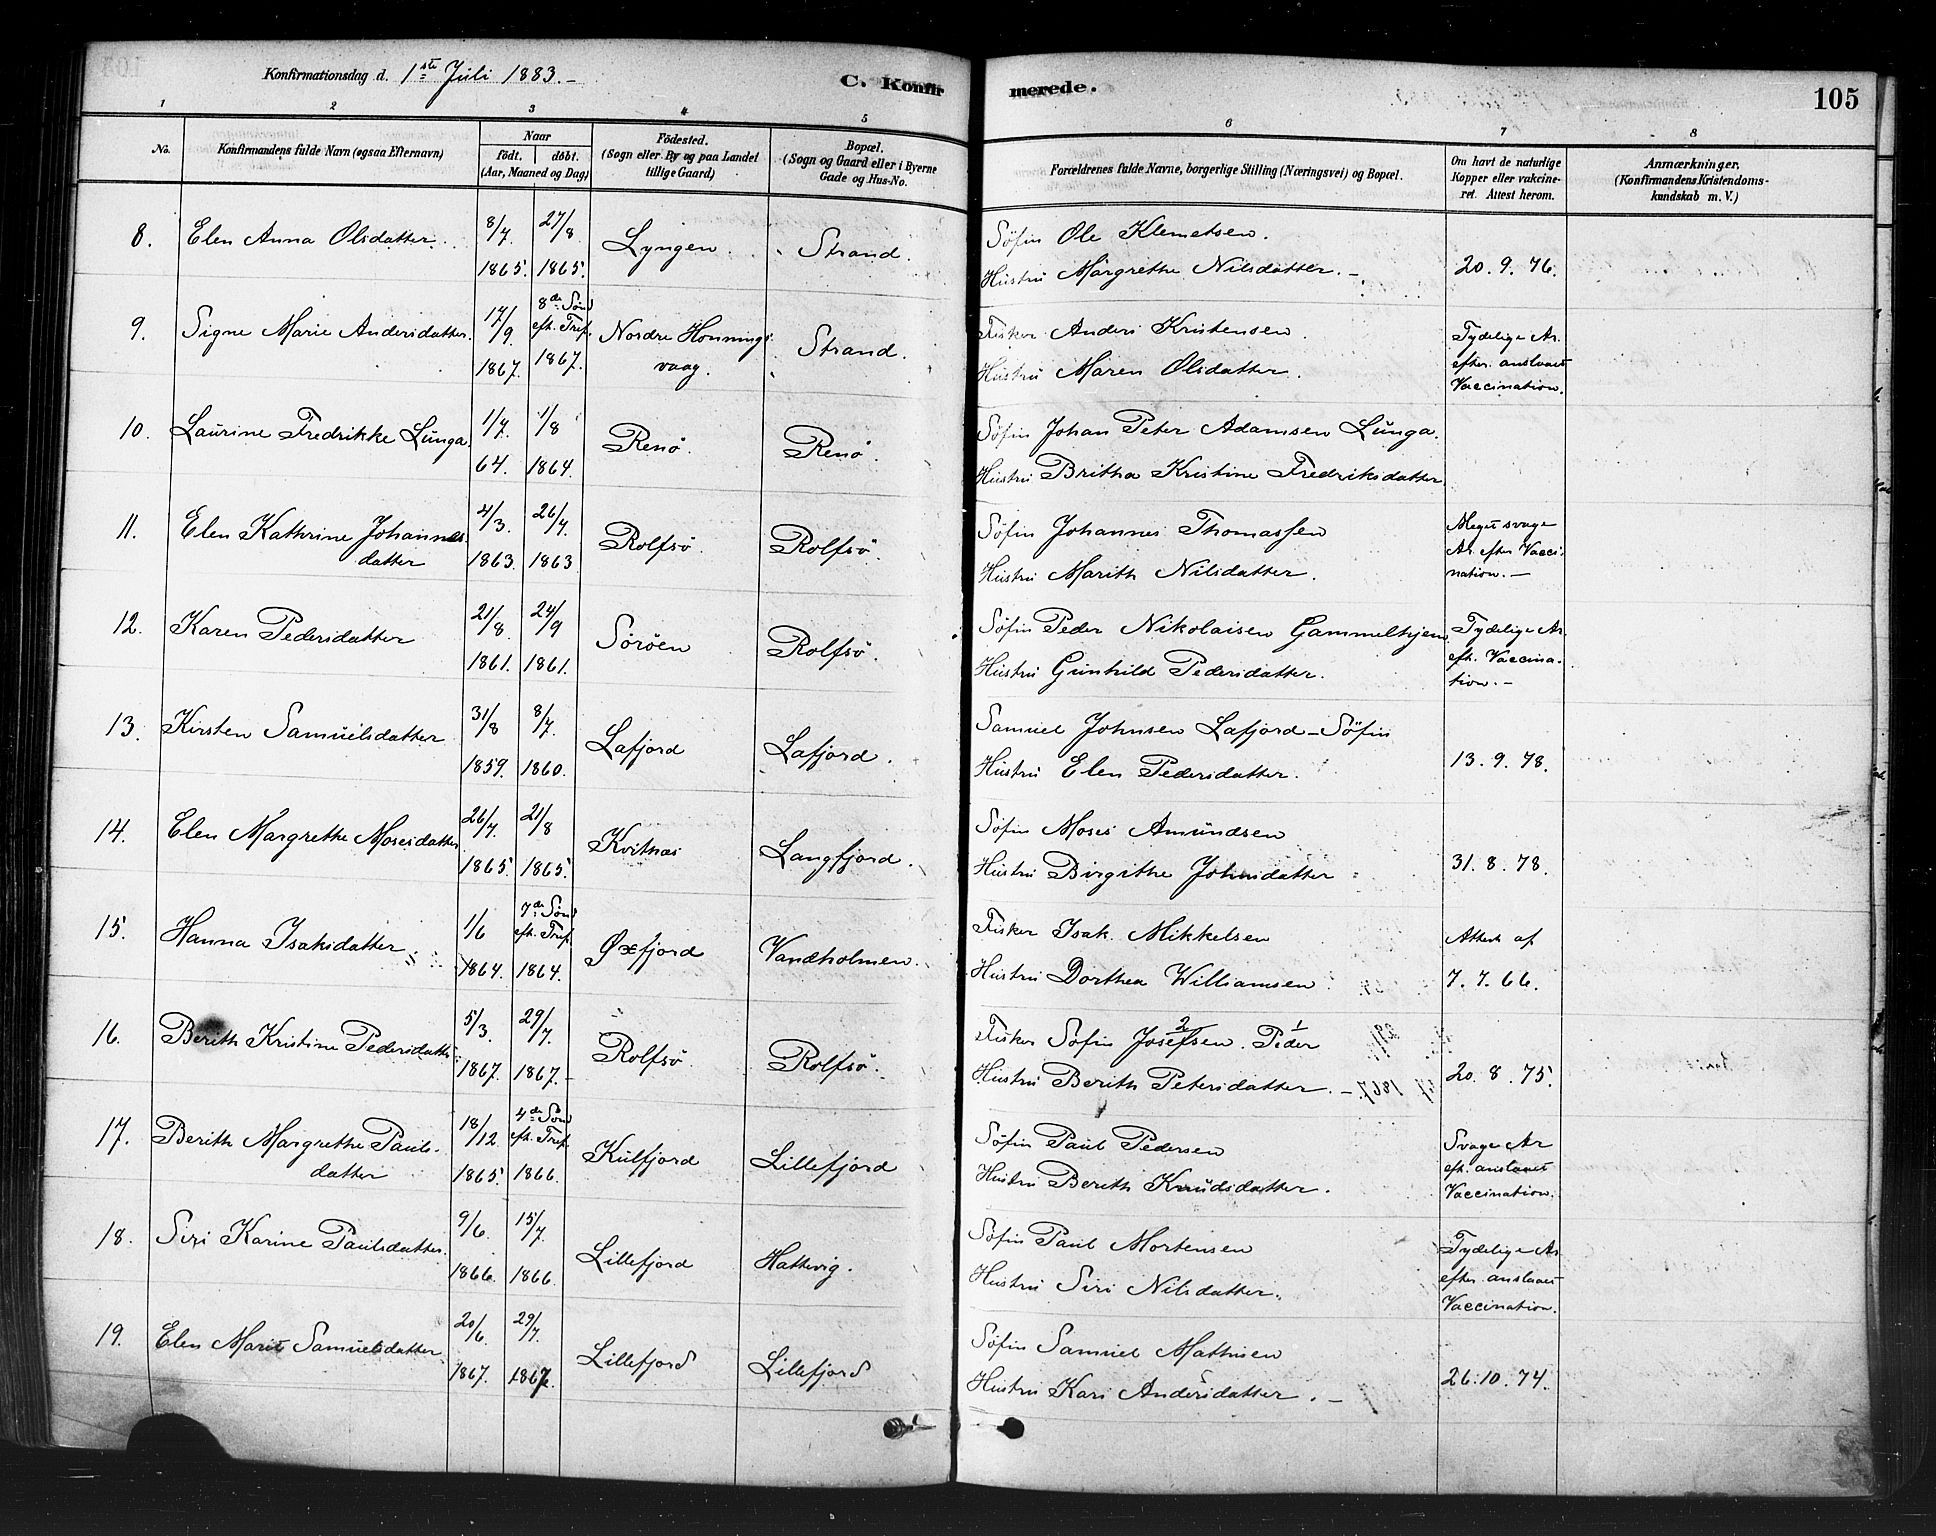 Konfirmationsdag d. 1ste Juli 1883.-
C. Konfirmerede.
105
1 2 3 4 5 6 7 8
No.
Konfirmandens fulde Navn (ogsaa Efternavn)
Naar
födt. döbt.
(Aar, Maaned og Dag)
Födested.
(Sogn eller By og paa Landet
tillige Gaard)
Bopæl.
(Sogn og Gaard eller i Byerne
Gade og Hus-No.
Forældrenes fulde Navne, borgerlige Stilling (Næringsvei) og Bopæl.
Om havt de naturlige
Kopper eller vakcine-
ret. Attest herom.
Anmærkninger.
(Konfirmandens Kristendoms-
kundskab m. V.)
8. Elen Anna Olsdatter. 8/7. 27/8 Lyngen. Strand. Söfin Ole Klemetsen.
1865. 1865. Hustru Margrethe Nilsdatter.- 20.9.76.
9. Signe Marie Andersdatter. 17/9 8de Sönd efh. Tref. Nordre Honnings Strand. Fisker Anders Kristensen. Tydelige Ar.
efter anstaaet
1867. 1867. vaag. Hustru Maren Olsdatter. Vaccination.
10. Laurine Fredrikke Lunga. 1/7. 1/8 Renö. Renö. Söfin Johan Peter Adamsen Lunga.
64. 1864. Hustru Britha Kristine Fredriksdatter
11. Elen Kathrine Johannes 4/3. 26/4. Rolfsö. Rolfsö. Söfin Johannes Thomassen Meget svage
Ar. efter Vacci-
datter 1863. 1863 Hustru Marith Nilsdatter. nation.-
12. Karen Pedersdatter 21/8. 24/9 Söröen Rolfsö. Söfin Peder Nikolaisen Gammelhjem Tydelige Ar.
efh. Vaccina-
1861. 1861. Hustru Gunhild Pedersdatter. tion.-
13. Kirsten Samuelsdatter 31/8 8/7. Lafjord Lafjord. Samuel Johnsen Lafjord-Söfin
1859. 1860. Hustru Elen Pedersdatter. 13.9.78.
14. Elen Margrethe Mosesdatter 26/7. 21/8 Kvitnæs Langfjord. Söfin Moses Amundsen
1865. 1865. Hustru Birgithe Johnsdatter 31.8.78.
15. Hanna Isaksdatter. 1/6 7de Sönd efh. Tref. Øxfjord Vandholmen. Fisker Isak Mikkelsen Attest af
1864. 1864. Hustru Dorthea Williamsen 7.7.66.
16. Berith Kristine Pedersdatter 5/3. 29/7. Rolfsö. Rolfsö. Fisker Söfin Josefsen. Peder
2 1
1867. 1867.- Hustru Berith Petersdatter.- 20.8.75.
17. Berith Margrethe Pauls- 18/12 4de Sönd efh. Tref. Kulfjord Lillefjord Söfin Paul Pedersen Svage Ar
efh. anstaaet
datter 1865. 1866. Hustru Berith Knudsdatter. Vaccination.
18. Siri Karine Paulsdatter. 9/6. 15/7. Lillefjord Hattevig. Söfin Paul Mortensen Tydelige Ar
efter anstaaet
1866. 1866. Hustru Siri Nilsdatter. Vaccination.
19. Elen Marit Samuelsdatter 20/6. 29/7. Lillefjord Lillefjord Söfin Samuel Mathisen
1867. 1867. Hustru Kari Andersdatter.- 26.10.74.